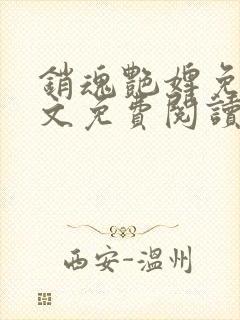 銷魂艷婢免
文免費閱讀
西安-溫州